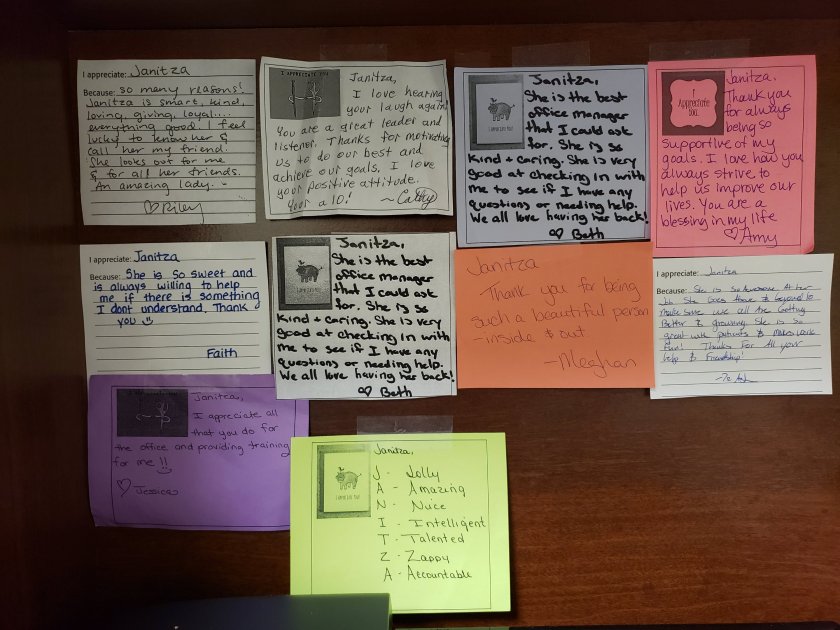 I appreciate: Janitza
Because: so many reasons!
Janitza is smart, kind,
loving, giving, loyal....
everything good! I feel
lucky to know her &
call her my friend.
She looks out for me
& for all her friends.
An amazing lady.
♡Riley
I APPRECIATE YOU
Janitza,
I love hearing
your laugh again!
You are a great leader and
listener. Thanks for motivating
us to do our best and
achieve our goals. I love
your positive attitude.
Your a 10!
~Cathy
I APPRECIATE YOU!
Janitza,
She is the best
office manager
that I could ask
for. She is so
Kind + caring. She is very
good at checking in with
me to see if I have any
questions or needing help.
We all love having her back!
♡ Beth
I
Appreciate
You
Janitza,
Thank you
for always
being so
supportive of my
goals. I love how you
always strive to
help us improve our
lives. You are a
blessing in my life
♡Amy
I appreciate: Janitza
Because: She is so sweet and
is always willing to help
me if there is something
I dont understand. Thank
you
Faith
I APPRECIATE YOU!
Janitza,
She is the best
office manager
that I could ask
for. She is so
Kind + caring. She is very
good at checking in with
me to see if I have any
questions or needing help.
We all love having her back!
♡ Beth
Janitza
Thank you for being
such a beautiful person
-inside & out.
-Meghan
I appreciate: Janitza
Because: She is so Awesome At her
Job She Goes Above & beyond to
make sure we all Are Getting
Better & growing. She is so
great with patients & makes work
Fun! Thanks For All your
help & Friendship!
Janitza,
I appreciate all
that you do for
the office and providing training
for me !!
♡ Jessica
I APPRECIATE YOU!
Janitza,
J - Jolly
A - Amazing
N - Nice
I - Intelligent
T - Talented
Z - Zappy
A - Accountable